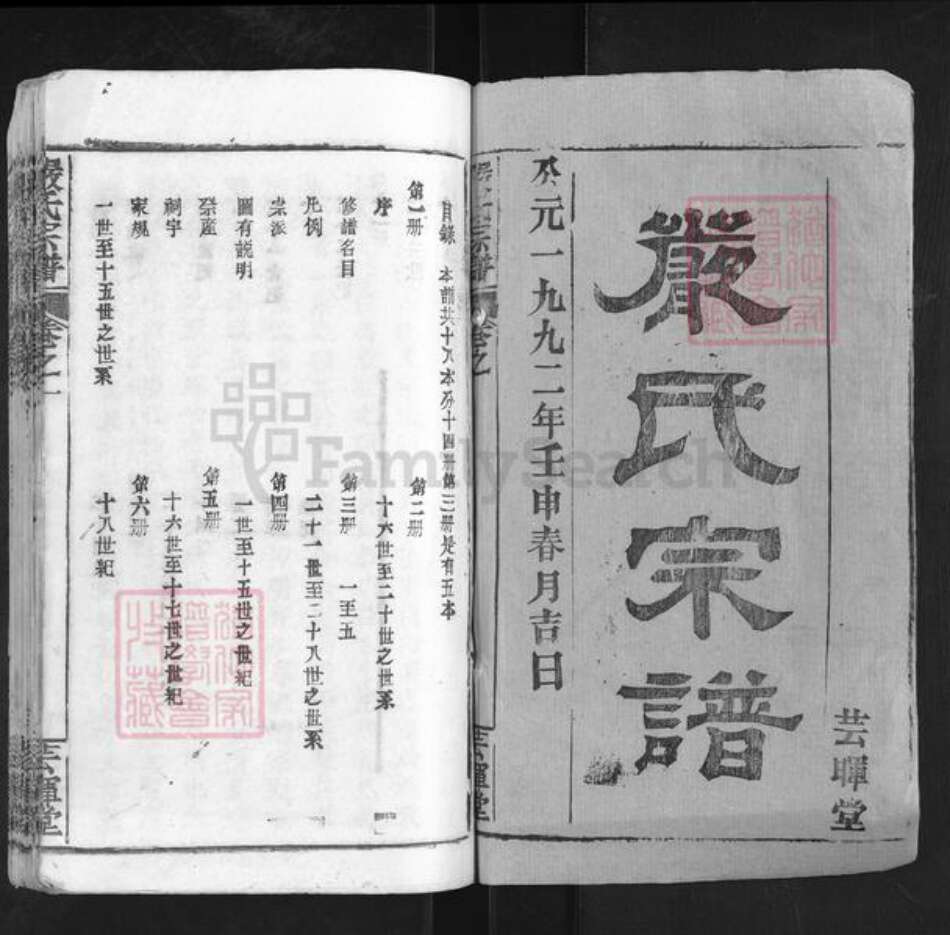 芸暉堂
嚴氏宗譜
公元一九九二年壬申春月吉日
嚴氏宗譜 卷之一
目錄 本譜共十八本分十四冊第三冊是有五本
第一冊
序
修譜名目
凡例
宗派
圖有説明
祭產
祠宇
家規
一世至十五世之世系
第二冊
十六世至二十世之世系
第三冊 一至五
二十一世至二十八世之世系
第四冊
一世至十五世之世紀
第五冊
十六世至十七世之世紀
第六冊
十八世紀
嚴氏宗譜 卷之一 芸暉堂
FamilySearch